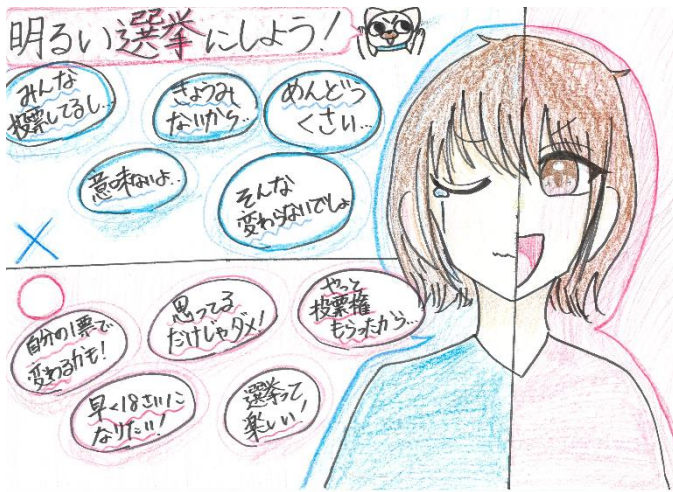 明るい選挙にしよう！
みんな
投票してるし…
きょうみ
ないから…
めんどう
くさい…
意味ないよ…
そんな
変わらないでしょ
自分の1票で
変わるかも！
思ってる
だけじゃダメ！
やっと
投票権
もらったから…
早く18さいに
なりたい！
選挙って
楽しい！